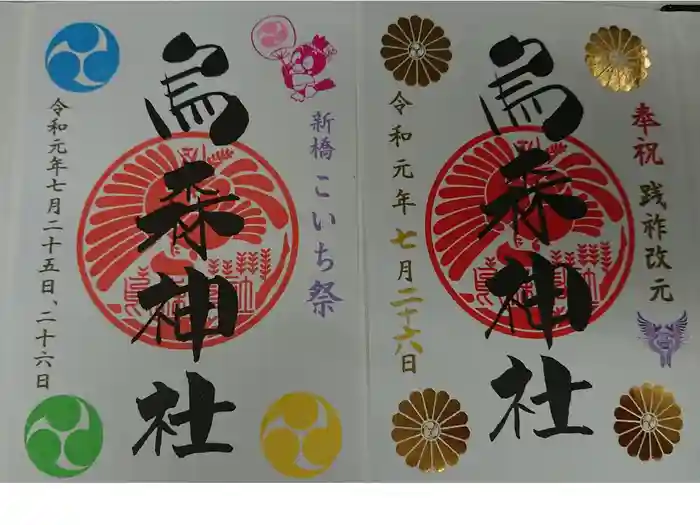 奉祝 践祚改元
烏森神社
令和元年七月二十六日
新橋 こいち祭
烏森神社
令和元年七月二十五日、二十六日